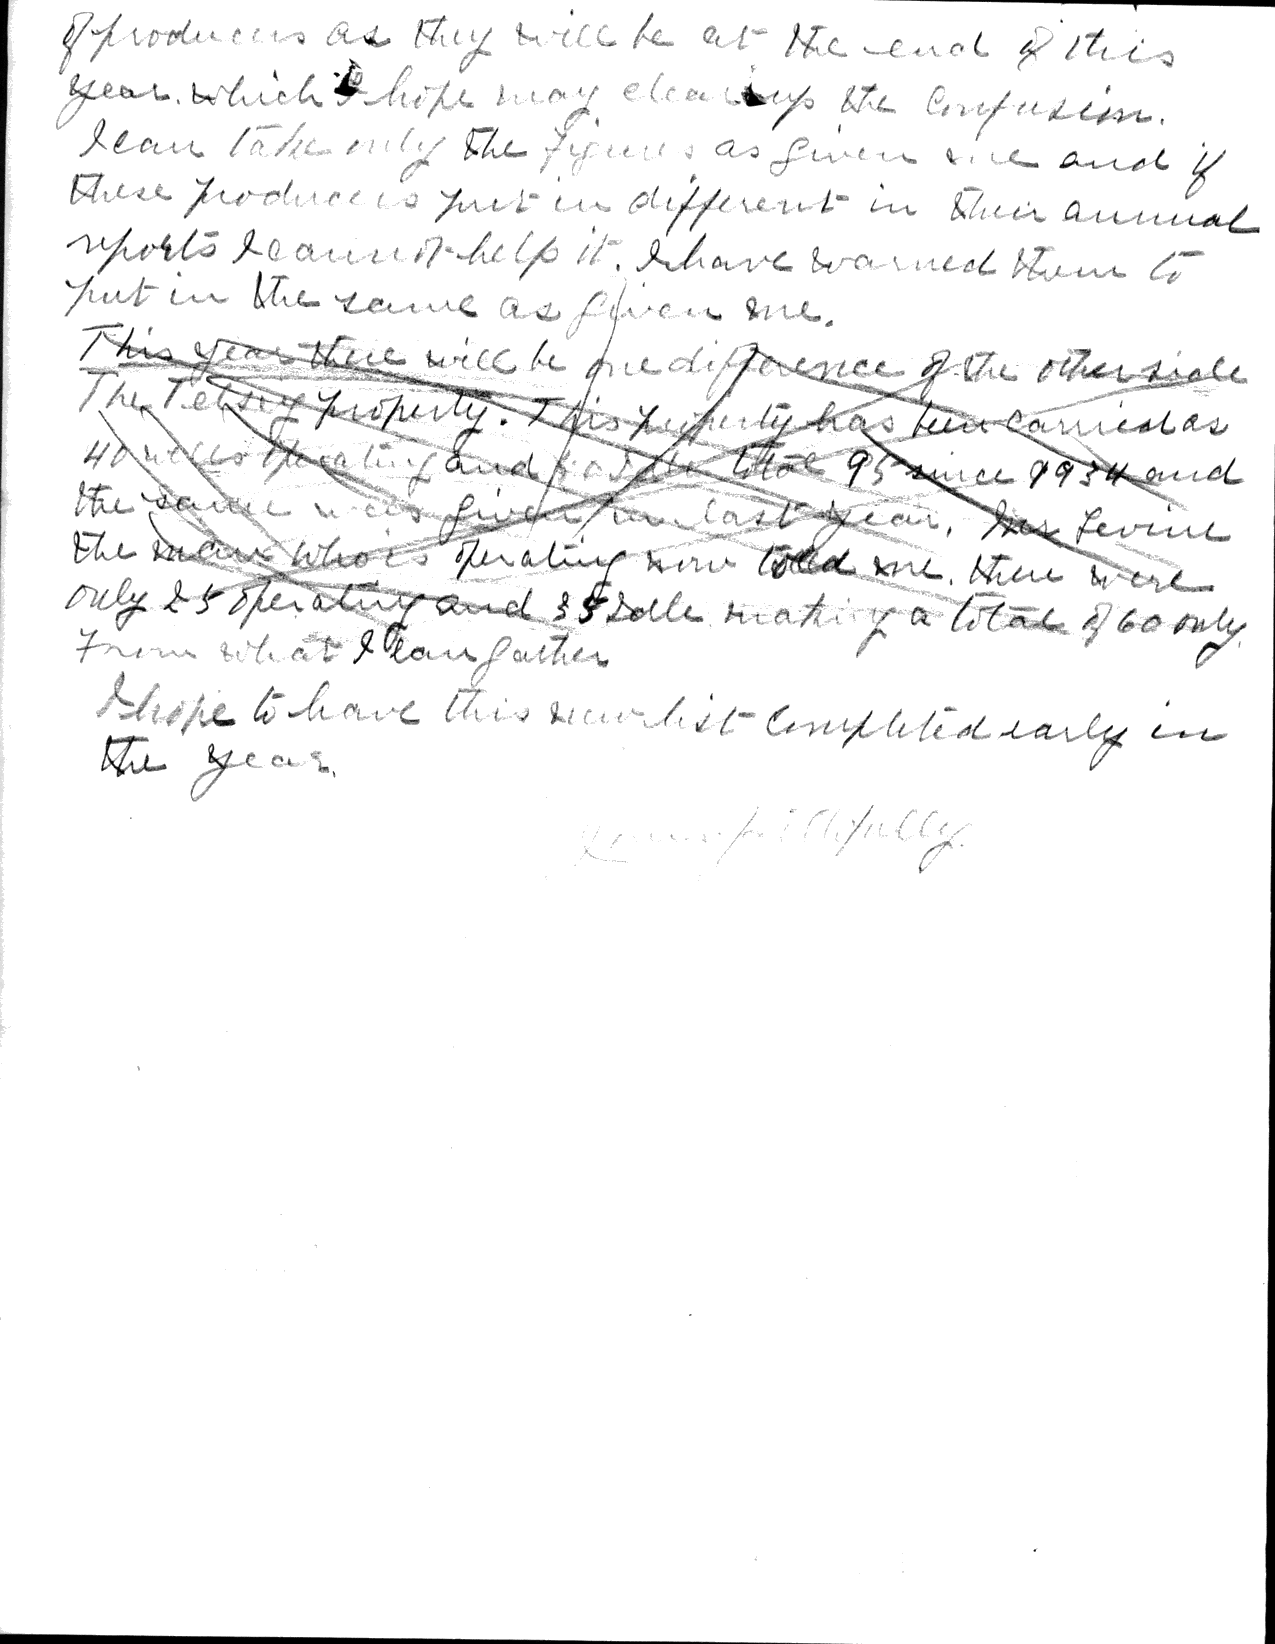 of producers as they will be at the end of this
year. which I hope may clear up the confusion.
I can take only the figures as given me and if
these producers put in different in their annual
reports I cannot help it. I have warned them to
put in the same as given me.
This year there will be one difference of the other side
The property. This property has been carried as
40 wells operating and total 95 since 1934 and
the same was given me last year. Levine
the man who is operating now told me. there were
only 25 operating and 35 Idle making a total of 60 only.
From what I can gather
I hope to have this new list completed early in
the year.
Yours faithfully.